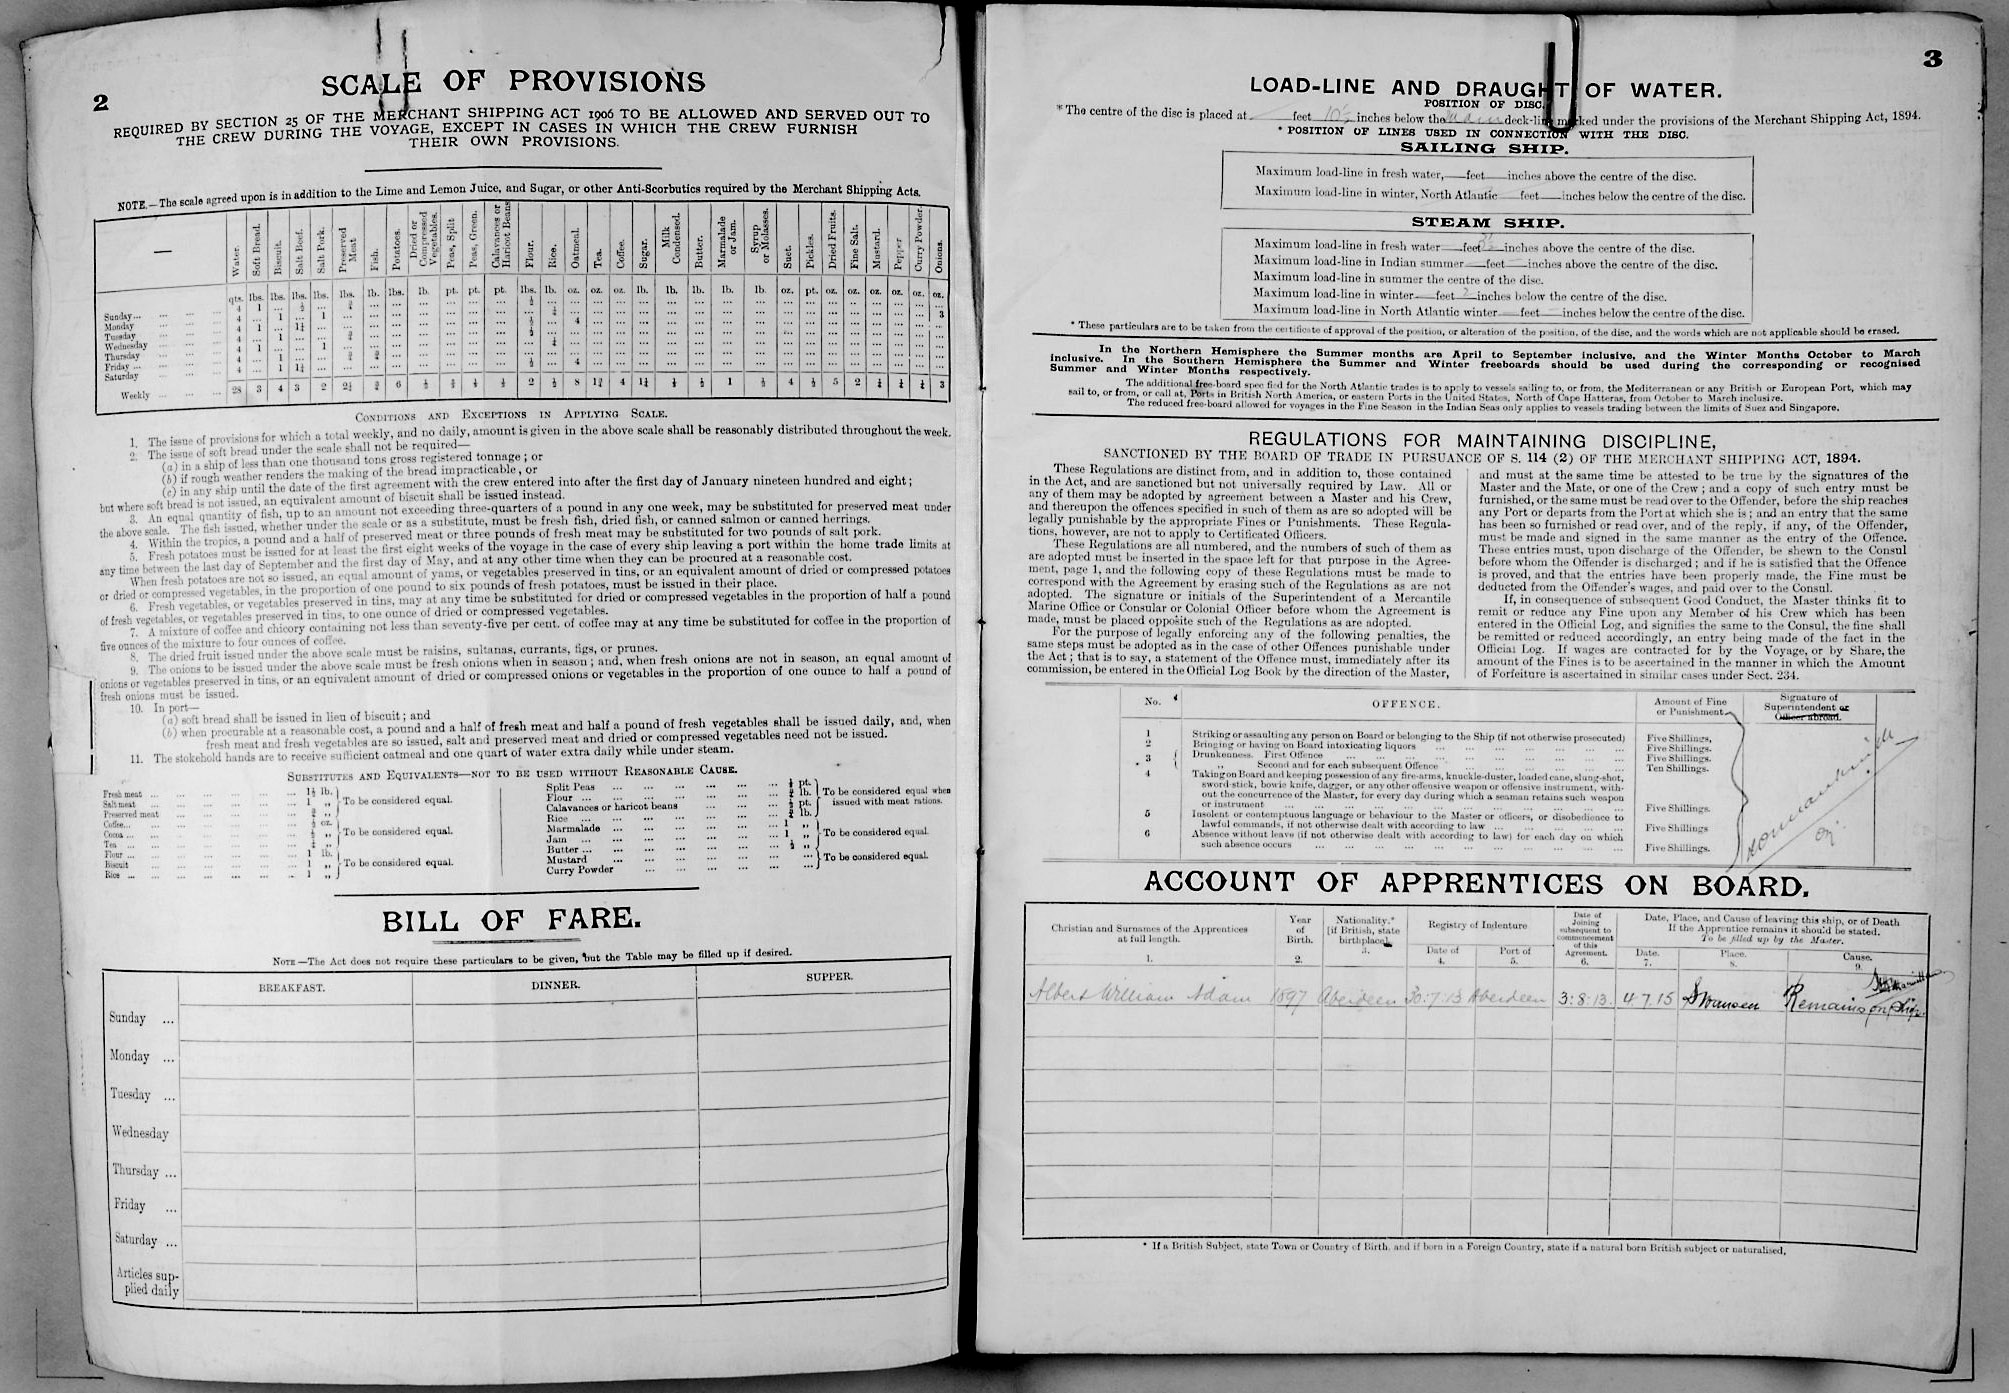 2
SCALE OF PROVISIONS
REQUIRED BY SECTION 25 OF THE MERCHANT SHIPPING ACT 1906 TO BE ALLOWED AND SERVED OUT TO
THE CREW DURING THE VOYAGE, EXCEPT IN CASES IN WHICH THE CREW FURNISH
THEIR OWN PROVISIONS.
NOTE.—The scale agreed upon is in addition to the Lime and Lemon Juice, and Sugar, or other Anti-Scorbutics required by the Merchant Shipping Acts.
— Water. Soft Bread. Biscuit. Salt Beef. Salt Pork. Preserved Meat Fish. Potatoes. Dried or Compressed Vegetables. Peas, Split Peas, Green. Calavances or Haricot Beans Flour. Rice. Oatmeal. Tea. Coffee. Sugar. Milk Condensed. Butter. Marmalade or Jam. Syrup or Molasses. Suet. Pickles. Dried Fruits. Fine Salt. Mustard. Pepper Curry Powder. Onions.
qts. lbs. lbs. lbs. lbs. lbs. lb. lbs. lb. pt. pt. pt. lbs. lb. oz. oz. oz. lb. lb. lb. lb. lb. oz. pt. oz. oz. oz. oz. oz. oz.
Sunday... 4 1 ... ½ ... ¾
Monday 4 ... 1 ... 1
Tuesday 4 1 ... 1¼
Wednesday 4 ... 1 ... ... ¾
Thursday 4 1 ... ... 1
Friday ... 4 ... 1
Saturday 4 ... 1 1¼
Weekly 28 3 4 3 2 2¼ ¾ 6 ½ ⅔ ⅓ ⅓ 2 ½ 8 1¾ 4 1¼ ⅓ ½ 1 ½ 4 ½ 5 2 ¼ ¼ ¼ 3
CONDITIONS AND EXCEPTIONS IN APPLYING SCALE.
1. The issue of provisions for which a total weekly, and no daily, amount is given in the above scale shall be reasonably distributed throughout the week.
2. The issue of soft bread under the scale shall not be required—
(a) in a ship of less than one thousand tons gross registered tonnage; or
(b) if rough weather renders the making of the bread impracticable, or
(c) in any ship until the date of the first agreement with the crew entered into after the first day of January nineteen hundred and eight;
but where soft bread is not issued, an equivalent amount of biscuit shall be issued instead.
3. An equal quantity of fish, up to an amount not exceeding three-quarters of a pound in any one week, may be substituted for preserved meat under
the above scale. The fish issued, whether under the scale or as a substitute, must be fresh fish, dried fish, or canned salmon or canned herrings.
4. Within the tropics, a pound and a half of preserved meat or three pounds of fresh meat may be substituted for two pounds of salt pork.
5. Fresh potatoes must be issued for at least the first eight weeks of the voyage in the case of every ship leaving a port within the home trade limits at
any time between the last day of September and the first day of May, and at any other time when they can be procured at a reasonable cost.
When fresh potatoes are not so issued, an equal amount of yams, or vegetables preserved in tins, or an equivalent amount of dried or compressed potatoes
or dried or compressed vegetables, in the proportion of one pound to six pounds of fresh potatoes, must be issued in their place.
6. Fresh vegetables, or vegetables preserved in tins, may at any time be substituted for dried or compressed vegetables in the proportion of half a pound
of fresh vegetables, or vegetables preserved in tins, to one ounce of dried or compressed vegetables.
7. A mixture of coffee and chicory containing not less than seventy-five per cent. of coffee may at any time be substituted for coffee in the proportion of
five ounces of the mixture to four ounces of coffee.
8. The dried fruit issued under the above scale must be raisins, sultanas, currants, figs, or prunes.
9. The onions to be issued under the above scale must be fresh onions when in season; and, when fresh onions are not in season, an equal amount of
onions or vegetables preserved in tins, or an equivalent amount of dried or compressed onions or vegetables in the proportion of one ounce to half a pound of
fresh onions must be issued.
10. In port—
(a) soft bread shall be issued in lieu of biscuit; and
(b) when procurable at a reasonable cost, a pound and a half of fresh meat and half a pound of fresh vegetables shall be issued daily, and, when
fresh meat and fresh vegetables are so issued, salt and preserved meat and dried or compressed vegetables need not be issued.
11. The stokehold hands are to receive sufficient oatmeal and one quart of water extra daily while under steam.
SUBSTITUTES AND EQUIVALENTS—NOT TO BE USED WITHOUT REASONABLE CAUSE.
Fresh meat ... 1½ lb.
Salt meat ... 1 „ To be considered equal.
Preserved meat ... ¾ „
Coffee... ½ oz.
Cocoa ... ½ „ To be considered equal.
Tea ... ¼ „
Flour ... 1 lb.
Biscuit 1 „ To be considered equal.
Rice ... 1 „
Split Peas ... pt.
Flour ... lb. To be considered equal when
Calavances or haricot beans pt. issued with meat rations.
Rice ... lb.
Marmalade ... 1 „
Jam ... 1 „ To be considered equal.
Butter ... ½ „
Mustard ... To be considered equal.
Curry Powder ...
BILL OF FARE.
NOTE—The Act does not require these particulars to be given, but the Table may be filled up if desired.
BREAKFAST. DINNER. SUPPER.
Sunday ...
Monday ...
Tuesday ...
Wednesday
Thursday ...
Friday ...
Saturday ...
Articles sup-
plied daily
3
LOAD-LINE AND DRAUGHT OF WATER.
POSITION OF DISC.
* The centre of the disc is placed at feet 10½ inches below the Main deck-line marked under the provisions of the Merchant Shipping Act, 1894.
* POSITION OF LINES USED IN CONNECTION WITH THE DISC.
SAILING SHIP.
Maximum load-line in fresh water, feet inches above the centre of the disc.
Maximum load-line in winter, North Atlantic feet inches below the centre of the disc.
STEAM SHIP.
Maximum load-line in fresh water feet inches above the centre of the disc.
Maximum load-line in Indian summer feet inches above the centre of the disc.
Maximum load-line in summer the centre of the disc.
Maximum load-line in winter feet 2 inches below the centre of the disc.
Maximum load-line in North Atlantic winter feet inches below the centre of the disc.
* These particulars are to be taken from the certificate of approval of the position, or alteration of the position, of the disc, and the words which are not applicable should be erased.
In the Northern Hemisphere the Summer months are April to September inclusive, and the Winter Months October to March
inclusive. In the Southern Hemisphere the Summer and Winter freeboards should be used during the corresponding or recognised
Summer and Winter Months respectively.
The additional free-board specified for the North Atlantic trades is to apply to vessels sailing to, or from, the Mediterranean or any British or European Port, which may
sail to, or from, or call at, Ports in British North America, or eastern Ports in the United States, North of Cape Hatteras, from October to March inclusive.
The reduced free-board allowed for voyages in the Fine Season in the Indian Seas only applies to vessels trading between the limits of Suez and Singapore.
REGULATIONS FOR MAINTAINING DISCIPLINE,
SANCTIONED BY THE BOARD OF TRADE IN PURSUANCE OF S. 114 (2) OF THE MERCHANT SHIPPING ACT, 1894.
These Regulations are distinct from, and in addition to, those contained
in the Act, and are sanctioned but not universally required by Law. All or
any of them may be adopted by agreement between a Master and his Crew,
and thereupon the offences specified in such of them as are so adopted will be
legally punishable by the appropriate Fines or Punishments. These Regula-
tions, however, are not to apply to Certificated Officers.
These Regulations are all numbered, and the numbers of such of them as
are adopted must be inserted in the space left for that purpose in the Agree-
ment, page 1, and the following copy of these Regulations must be made to
correspond with the Agreement by erasing such of the Regulations as are not
adopted. The signature or initials of the Superintendent of a Mercantile
Marine Office or Consular or Colonial Officer before whom the Agreement is
made, must be placed opposite such of the Regulations as are adopted.
For the purpose of legally enforcing any of the following penalties, the
same steps must be adopted as in the case of other Offences punishable under
the Act; that is to say, a statement of the Offence must, immediately after its
commission, be entered in the Official Log Book by the direction of the Master,
and must at the same time be attested to be true by the signatures of the
Master and the Mate, or one of the Crew; and a copy of such entry must be
furnished, or the same must be read over to the Offender, before the ship reaches
any Port or departs from the Port at which she is; and an entry that the same
has been so furnished or read over, and of the reply, if any, of the Offender,
must be made and signed in the same manner as the entry of the Offence.
These entries must, upon discharge of the Offender, be shewn to the Consul
before whom the Offender is discharged; and if he is satisfied that the Offence
is proved, and that the entries have been properly made, the Fine must be
deducted from the Offender's wages, and paid over to the Consul.
If, in consequence of subsequent Good Conduct, the Master thinks fit to
remit or reduce any Fine upon any Member of his Crew which has been
entered in the Official Log, and signifies the same to the Consul, the fine shall
be remitted or reduced accordingly, an entry being made of the fact in the
Official Log. If wages are contracted for by the Voyage, or by Share, the
amount of the Fines is to be ascertained in the manner in which the Amount
of Forfeiture is ascertained in similar cases under Sect. 234.
No. OFFENCE. Amount of Fine or Punishment. Signature of Superintendent or Officer abroad.
1 Striking or assaulting any person on Board or belonging to the Ship (if not otherwise prosecuted) Five Shillings,
2 Bringing or having on Board intoxicating liquors ... Five Shillings.
3 Drunkenness. First Offence ... Five Shillings.
„ Second and for each subsequent Offence ... Ten Shillings.
4 Taking on Board and keeping possession of any fire-arms, knuckle-duster, loaded cane, slung-shot,
sword-stick, bowie knife, dagger, or any other offensive weapon or offensive instrument, with-
out the concurrence of the Master, for every day during which a seaman retains such weapon
or instrument ... Five Shillings.
5 Insolent or contemptuous language or behaviour to the Master or officers, or disobedience to
lawful commands, if not otherwise dealt with according to law ... Five Shillings
6 Absence without leave (if not otherwise dealt with according to law) for each day on which
such absence occurs ... Five Shillings.
ACCOUNT OF APPRENTICES ON BOARD.
Christian and Surnames of the Apprentices at full length. 1.
Year of Birth. 2.
Nationality.* [if British, state birthplace]. 3.
Registry of Indenture
Date of 4.
Port of 5.
Date of Joining subsequent to commencement of this Agreement. 6.
Date, Place, and Cause of leaving this ship, or of Death
If the Apprentice remains it should be stated.
To be filled up by the Master.
Date. 7.
Place. 8.
Cause. 9.
Albert William Adam 1897 Aberdeen 30:7:13 Aberdeen 3:8:13. 4.7.15 Swansea Remains on Ship.
* If a British Subject, state Town or Country of Birth, and if born in a Foreign Country, state if a natural born British subject or naturalised.